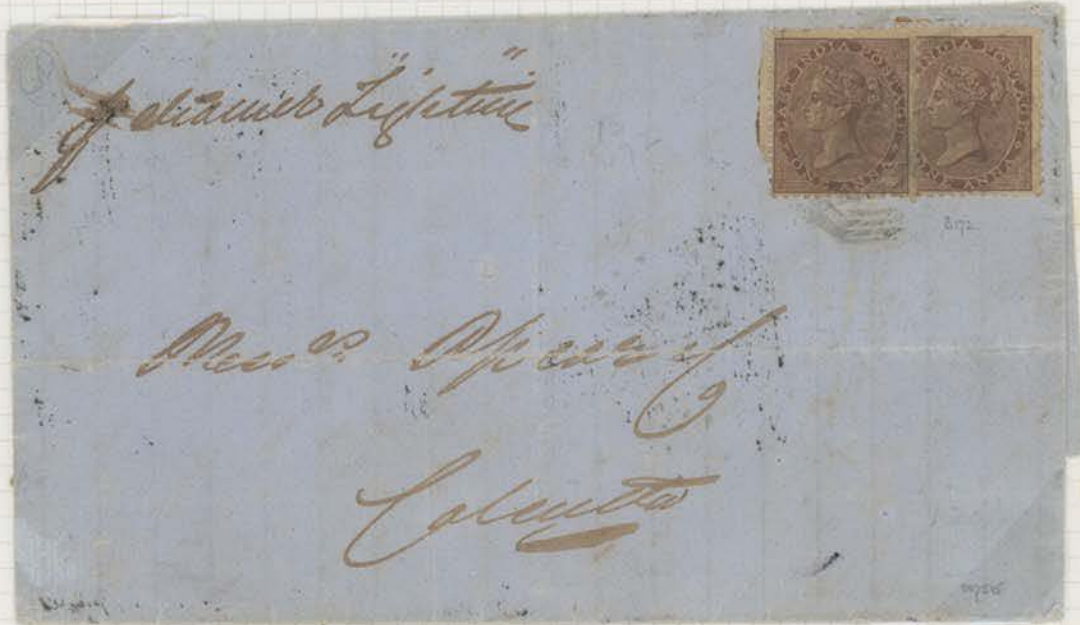 p steamer "Lightning"
EAST INDIA POSTAGE ONE ANNA
EAST INDIA POSTAGE ONE ANNA
B172
Mess rs Apcar &
Calcutta